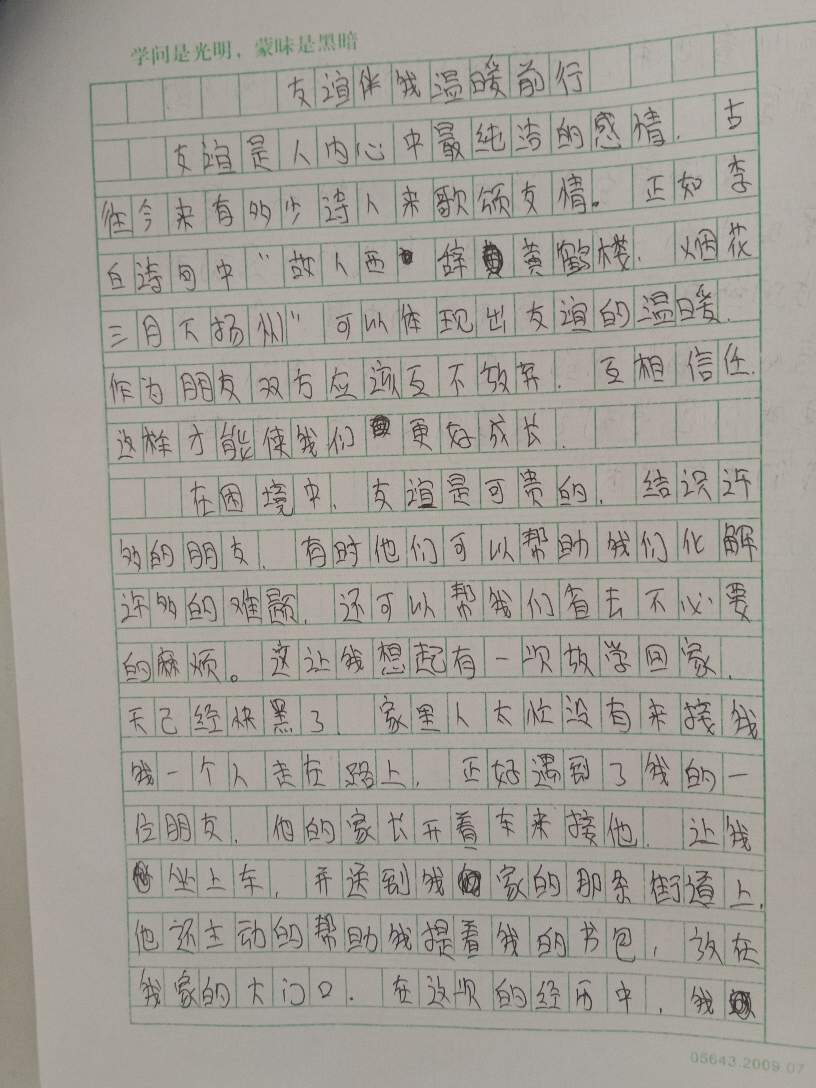 学问是光明，蒙昧是黑暗
友谊伴我温暖前行
友谊是人内心中最纯洁的感情.古
往今来有多少诗人来歌颂友情。正如李
白诗句中“故人西辞黄鹤楼.烟花
三月下扬州”可以体现出友谊的温暖.
作为朋友双方应该互不放弃.互相信任.
这样才能使我们更好成长.
在困境中.友谊是可贵的.结识许
多的朋友.有时他们可以帮助我们化解
许多的难题.还可以帮我们省去不必要
的麻烦。这让我想起有一次放学回家.
天已经快黑了.家里人太忙没有来接我
我一个人走在路上.正好遇到了我的一
位朋友.他的家长开着车来接他.让我
坐上车，开送到我家的那条街道上.
他还主动的帮助我提着我的书包，放在
我家的大门口.在这次的经历中，我
05643.2009.07